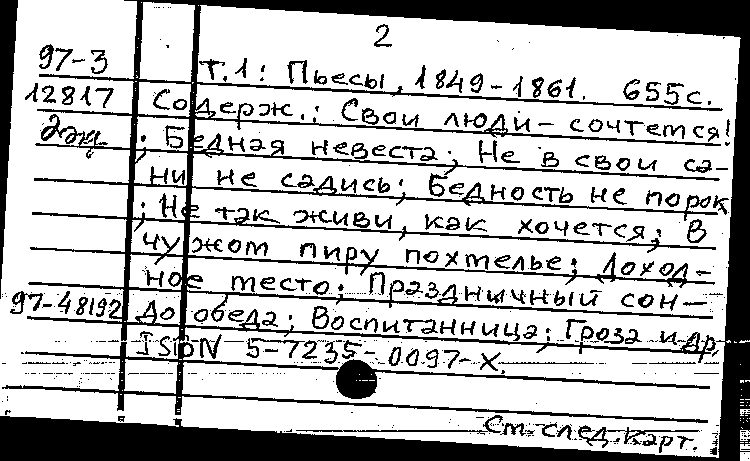 2
97-3 Т.1: Пьесы, 1849-1861. 655с.
12817 Содерж.: Свои люди - сочтемся!
2эк ; Бедная невеста; Не в свои са-
ни не садись; Бедность не порок
; Не так живи, как хочется; В
чужом пиру похмелье; Доход-
ное место; Праздничный сон -
97-48192 до обеда; Воспитанница; Гроза и др.
ISBN 5-7235-0097-X.
См. след. карт.